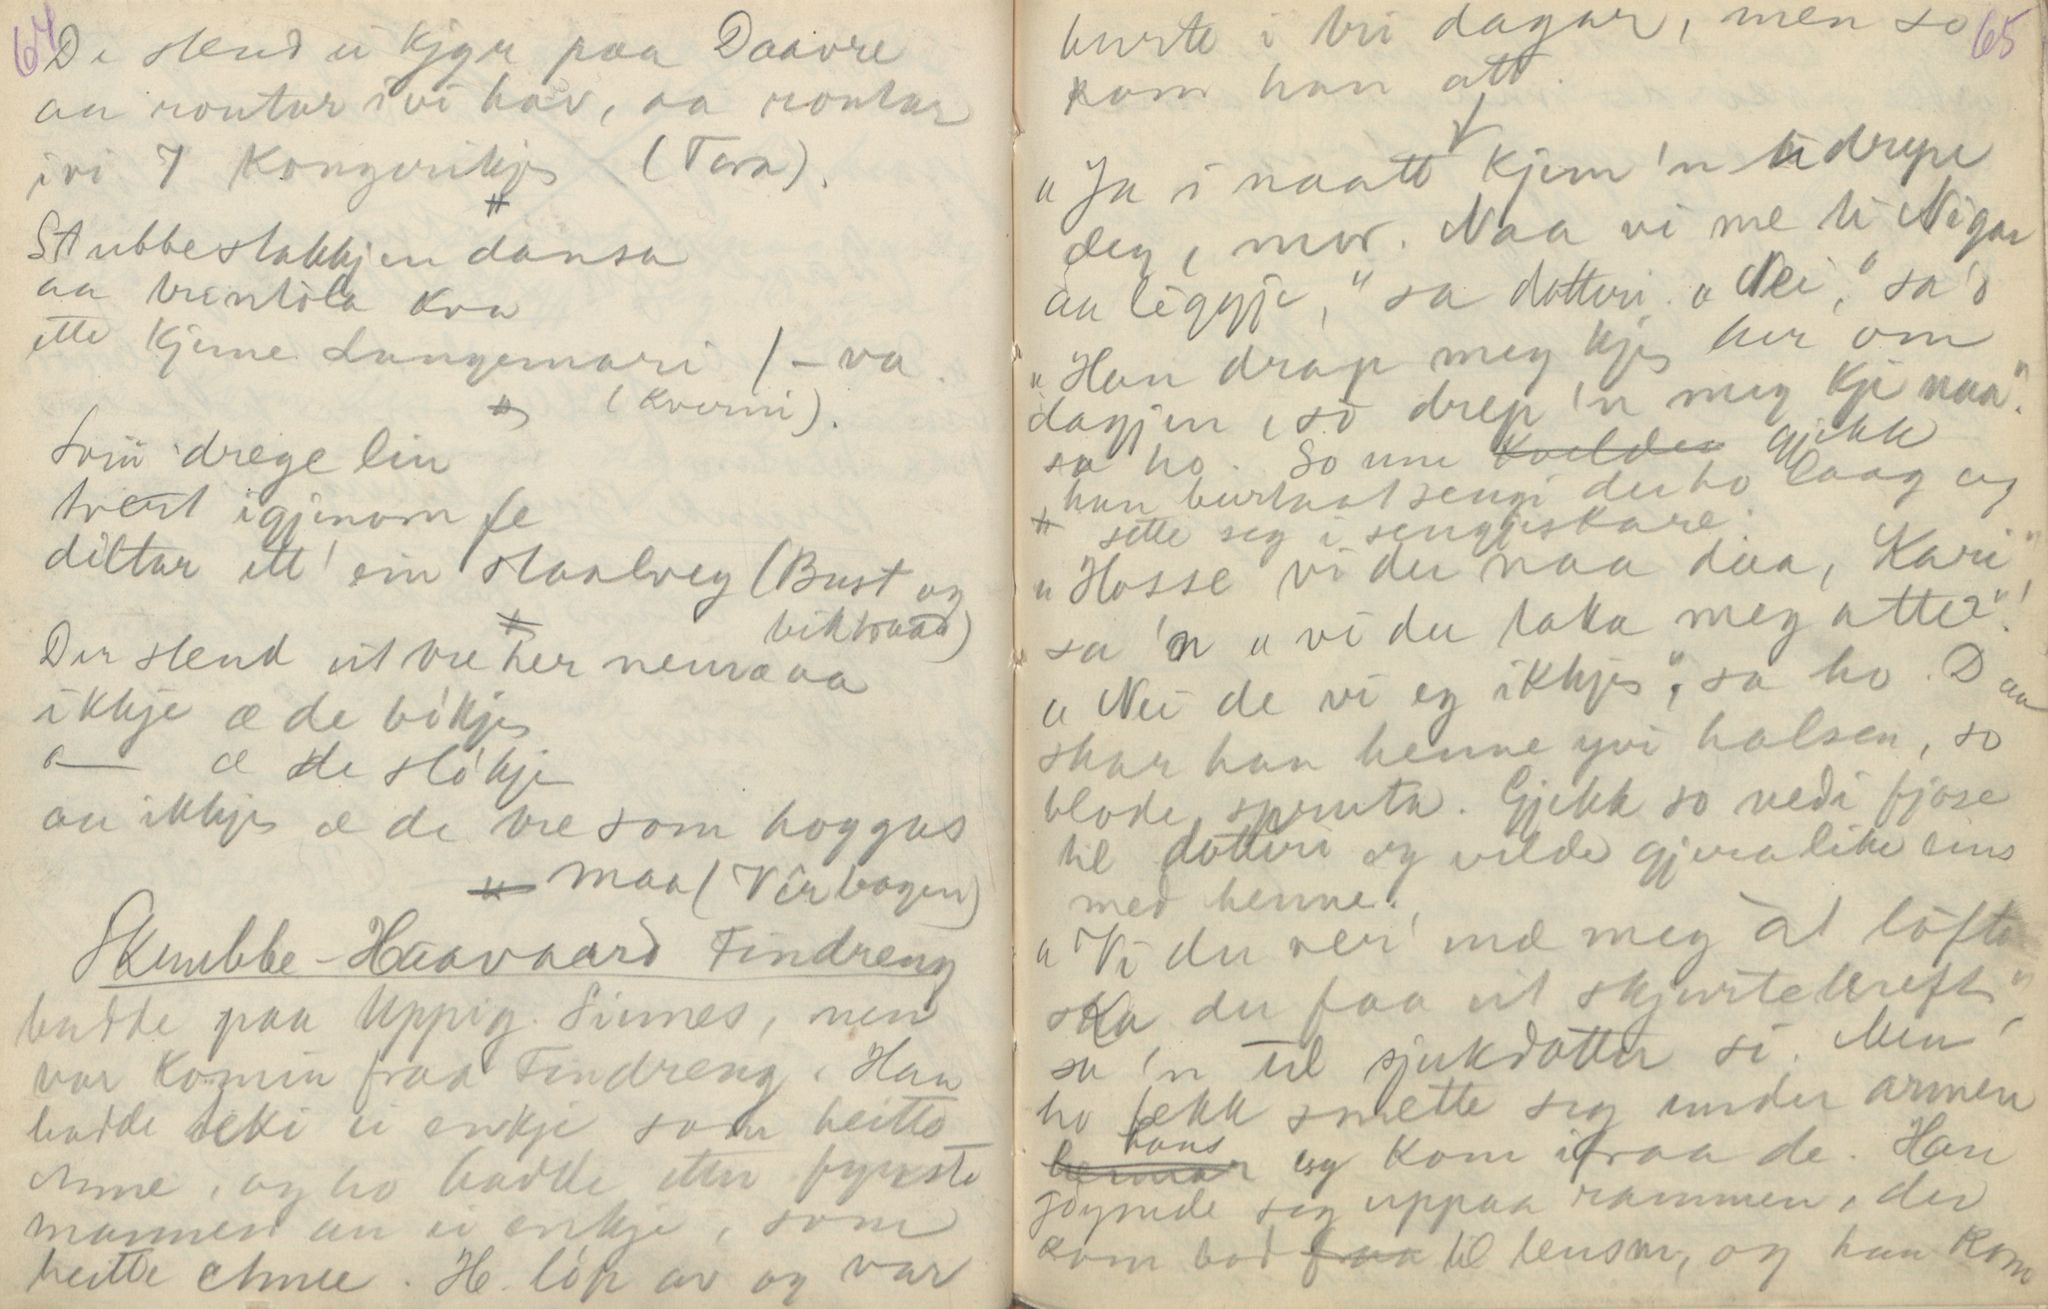 64
De stend ei kjyr paa Daavre
aa rautar ivi hav, aa rautar
ivi 7 Kongerikje (Tora).
Stubbestakkjen dansa
aa trintola kva
ette kjeme Langemari / – va
(Kverni).
Svin drege lin
tvert igjenom le
diltar ett' ein staalveg (Bust og
biktraad)
Der stend eit tre her nera aa
ikkje æ de bikje
" — æ de slókje
aa ikkje æ de tre som hoggas
maa (Verbogen)
Skrubbe-Haavaard Findreng
budde paa Uppig. Sinnes, men
var komin fraa Findreng. Han
hadde teki ei enkje som heitte
Anne, og ho hadde etter fyrste
mannen au ei enkje, som
heitte Anne. H. lóp av og var
65
burte i tri dagar, men so
kom han att.
"Ja i naatt kjem 'n te drepe
deg, mor. Naa vi me ti Nigar
aa léggje," sa dotteri. "Nei," sa 'o
"Han drap meg kje her om
dagjen, so drep 'n meg kje naa".
sa ho. So um kvelden gjekk
han burtaat sengi der ho laag og
sette seg i sengjeskare.
"Hosse vi du naa daa, Kari",
sa 'n "vi du taka meg atte?"
"Nei de vi eg ikkje", sa ho. Daa
skar han henne yvi halsen, so
blode spruta. Gjekk so ned i fjose
til dotteri og vilde gjera like eins
med henne.
"Vi du ver' mæ meg àt lófte
ska du faa eit skjurtekneft",
sa 'n til sjukdotter si. Men
ho fekk smette seg under armen
hans og kom ifraa de. Han
góymde seg uppaa rammen, der
kom bod faa til lensm, og han kom